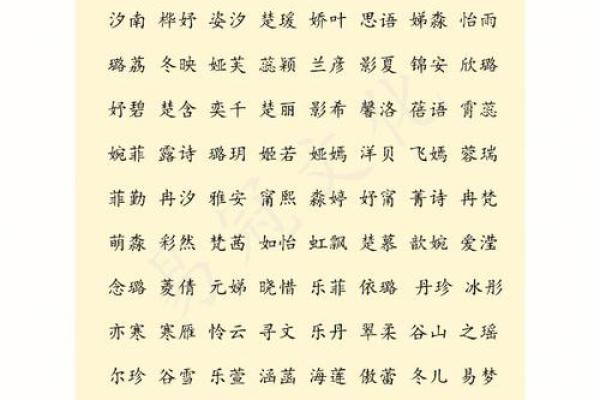 汐南 桦妤 姿汐 楚瑗 娇叶 思语 娣淼 怡雨
璐荔 冬映 娅芙 蕊颖 兰彦 影夏 锦安 欣璐
妤碧 楚含 奕千 楚丽 影希 馨洛 蓓语 霄蕊
婉菲 露诗 璐玥 姬若 娅嫣 洋贝 飞嫣 蓉瑞
菲勤 冉汐 雅安 甯熙 淼婷 妤甯 菁诗 冉梵
萌淼 彩然 梵茜 如怡 虹飘 楚慕 歆婉 爱滢
念璐 菱倩 元娣 晓惜 乐菲 依璐 丹珍 冰彤
亦寒 寒雁 怜云 寻文 乐丹 翠柔 谷山 之瑶
尔珍 谷雪 乐萱 涵菡 海莲 傲蕾 冬儿 易梦
易冠文化